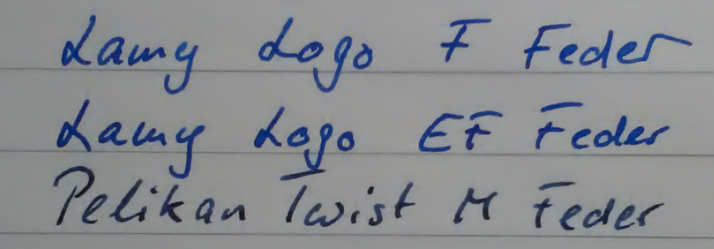 Lamy Logo F Feder
Lamy Logo EF Feder
Pelikan Twist M Feder